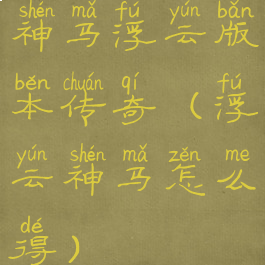 shén mǎ fú yún bǎn
神马浮云版
běn chuán qí fú
本传奇（浮
yún shén mǎ zěn me
云神马怎么
dé
得）